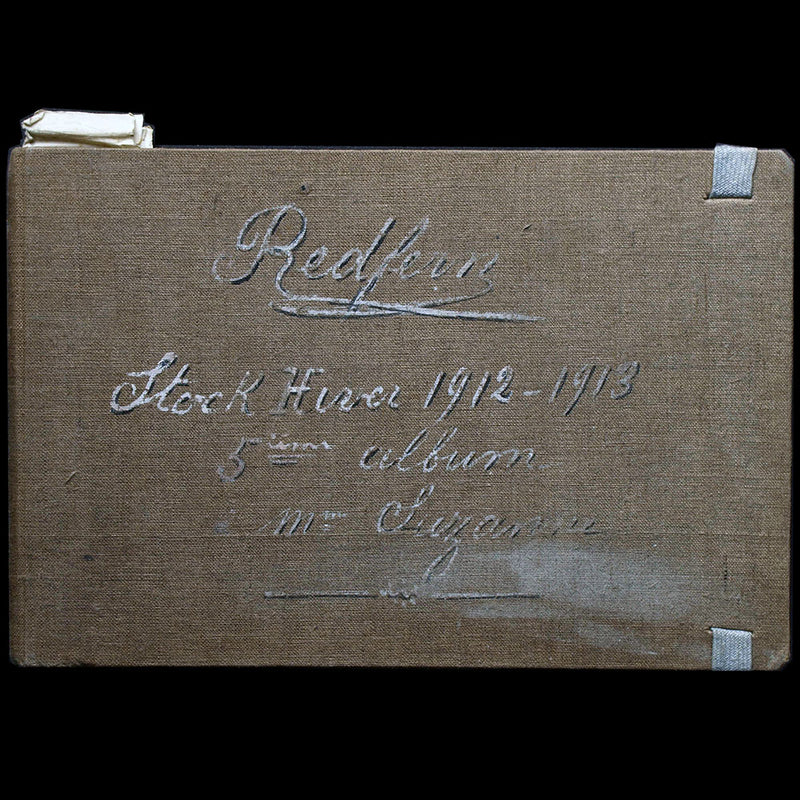 Redfern
Stock Hiver 1912-1913
5ième album
à Mme Suzanne